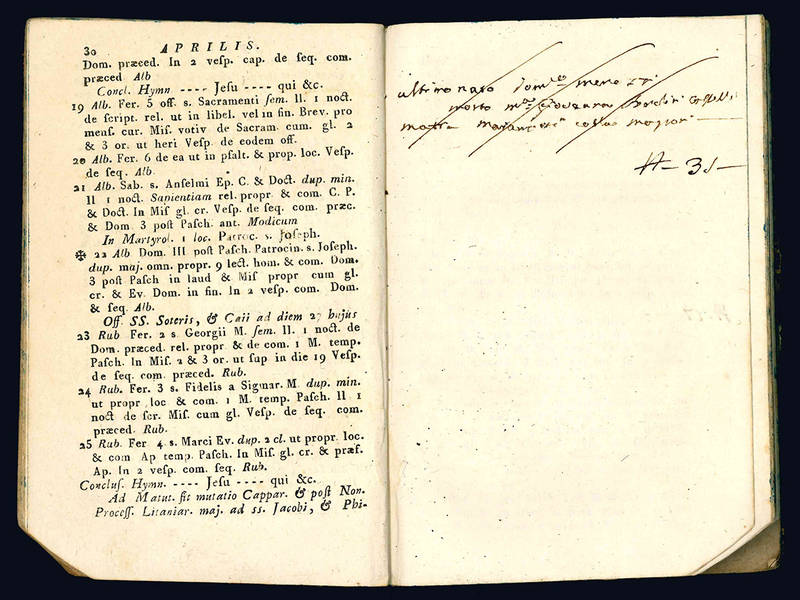 30 APRILIS.
Dom. præced. In 2 vesp. cap. de seq. com.
præced Alb
Concl. Hymn ---- Jesu ---- qui &c.
19 Alb. Fer. 5 off. s. Sacramenti sem. ll. 1 noct.
de script. rel. ut in libel. vel in fin. Brev. pro
mens. cur. Mis. votiv de Sacram. cum. gl. 2
& 3 or. ut heri Vesp. de eodem off.
20 Alb. Fer. 6 de ea ut in psalt. & prop. loc. Vesp.
de seq. Alb.
21 Alb. Sab. s. Anselmi Ep. C. & Doct. dup. min.
ll 1 noct. Sapientiam rel. propr & com. C. P.
& Doct. In Mis gl. cr. Vesp. de seq. com. præc.
& Dom 3 post Pasch. ant. Modicum
In Martyrol. 1 loc. Patroc. s. Joseph.
✠ 22 Alb Dom. III post Pasch. Patrocin. s. Joseph.
dup. maj. omn. propr. 9 lect. hom. & com. Dom.
3 post Pasch in laud & Mis propr cum gl.
cr. & Ev. Dom. in fin. In 2 vesp. com. Dom.
& seq. Alb.
Off. SS. Soteris, & Caii ad diem 27 hujus
23 Rub Fer. 2 s. Georgii M. sem. ll. 1 noct. de
Dom. præced. rel. propr & de com. 1 M. temp.
Pasch. In Mis. 2 & 3 or. ut sup in die 19 Vesp.
de seq. com. præced. Rub.
24 Rub. Fer. 3 s. Fidelis a Sigmar. M. dup. min.
ut propr loc & com. 1 M. temp. Pasch. ll 1
noct de scr. Mis. cum gl. Vesp. de seq. com.
præced. Rub.
25 Rub. Fer 4 s. Marci Ev. dup. 2 cl. ut propr. loc.
& com Ap temp. Pasch. In Mis. gl. cr. & præf.
Ap. In 2 vesp. com. seq. Rub.
Conclus. Hymn. ---- Jesu ---- qui &c.
Ad Matut. fit mutatio Cappar. & post Non.
Process. Litaniar. maj. ad ss. Jacobi, & Phi-
ultimo
morto Giovanna